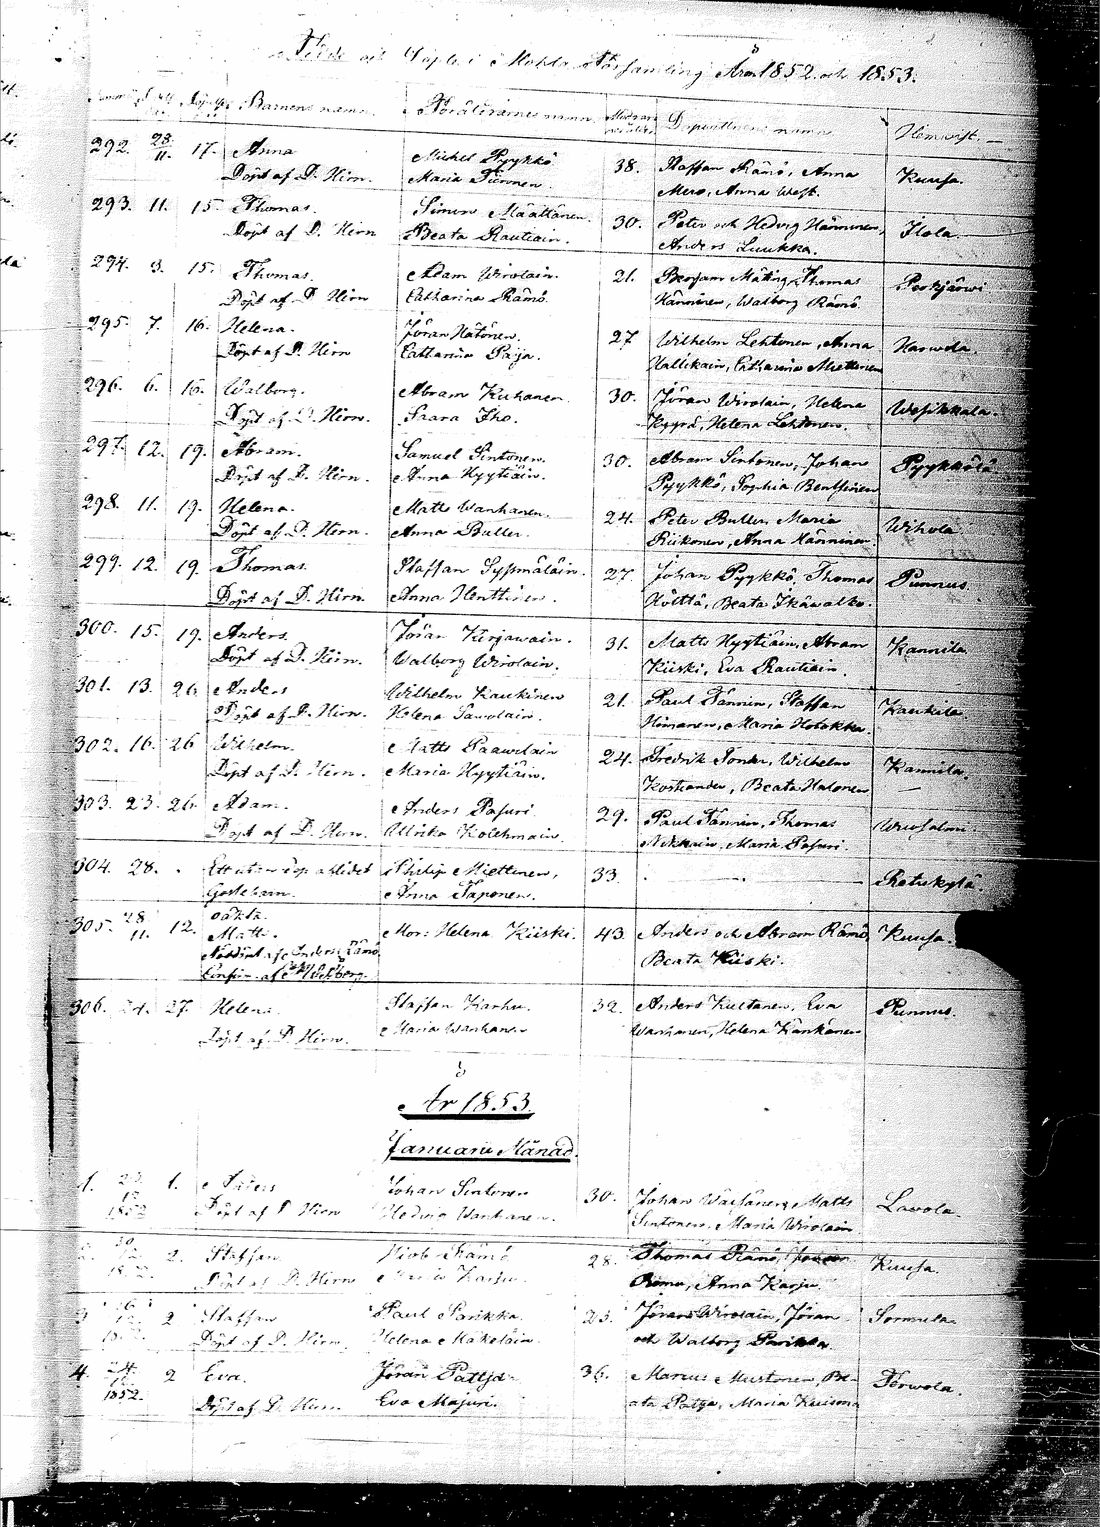 Födde och Döpte i Mohla Församling Åren 1852 och 1853.
Barnens namn. Föräldrarnes namn. Hemvist.
292. 28/11. 17. Anna Michel Pyykkö 38. Staffan Rämö, Anna Kuusa.
Döpt af D. Hirn. Maria Tiironen. Anna West.
293. 11. 15. Thomas. Simon Määttänen. 30. Peter och Hedvig Hänninen, Ilola.
Döpt af D. Hirn Beata Rautiain. Anders Luukka.
294. 3. 15. Thomas. Adam Wirolain. 21. Benjam Mäting, Thomas Perkjärwi
Döpt af D. Hirn Catharina Rämö. Hänninen, Walborg Rämö
295. 7. 16. Helena. Jöran Hatonen. 27 Wilhelm Lehtonen, Anna
Döpt af D. Hirn Catharina Paja. Hallikain, Catharina Miettinen
296. 6. 16. Walborg. Abram Kuhanen 30. Jöran Wirolain, Helena Wesikkala.
Döpt af D. Hirn. Saara Iho. Kyyrä, Helena Lehtonen.
297. 12. 19. Abram. Samuel Sintonen. 30. Abram Sintonen, Johan Pyykkölä
Döpt af D. Hirn. Anna Hyytiäin. Pyykkö, Sophia
298. 11. 19. Helena. Matts Wanhanen. 24. Peter Buller, Maria Wihola
Döpt af D. Hirn. Anna Buller. Riikonen, Anna Hänninen
299. 12. 19. Thomas. Staffan Sypmäläin. 27. Johan Pyykkö, Thomas Punnus.
Döpt af D. Hirn. Anna Henttinen. Hölttä, Beata Ikäwalko.
300. 15. 19. Anders. Jöran Kirjawain. 31. Matts Hyytiäin, Abram Kannila
Döpt af D. Hirn. Walborg Wirolain. Kiiski, Eva Rautiain.
301. 13. 26 Anders Wilhelm Kaukinen 21. Paul Tännin, Staffan Kaukila.
Döpt af D. Hirn. Helena Sawolain. Himanen, Maria Hotokka.
302. 16. 26 Wilhelm. Matts Paawilain 24. Fredrik Wilhelm Kannila
Döpt af D. Hirn. Maria Hyytiäin. Beata Halonen
303. 23. 26 Adam. Anders Pasuri. 29. Paul Tännin, Thomas Wuosalmi.
Döpt af D. Hirn. Ulrika Kolehmain. Maria Pasuri.
304. 28. Ett utan dop aflidet Philip Miettinen, 33. Rotukylä.
Gossebarn. Anna Taponen.
305. 28/11. 12. oäkta. Matts. Mor: Helena Kiiski. 43. Anders och Abram Rämö, Kuusa.
Nöddöpt af Anders Rämö Beata Kiiski.
306. 24. 27. Helena. Staffan Karhu. 32. Anders Kultanen, Eva Punnus.
Döpt af D. Hirn. Maria Wanhanen Wanhanen, Helena Känkänen
År 1853.
Januari Månad.
1. 1. Anders Johan Sintonen 30. Johan Matts Lavola.
1852 Döpt af D. Hirn Hedvig Wanhanen. Sintonen, Maria Wirolain
2. 2. Staffan Rämö 28. Thomas Rämö, Kuusa.
Döpt af D. Hirn Maria Karju. Rämö, Anna Karju.
3 2 Staffan Paul Parikka. Jöran Wirolain, Jöran Sormula.
Döpt af D. Hirn. Helena Mäkeläin. och Walborg Parikka
4. 24 2 Eva. Jöran Pattja 36. Marcus Mustonen, Be- Terwola.
1852. Döpt af D. Hirn Eva Majuri. ata Patja, Maria Kuisma